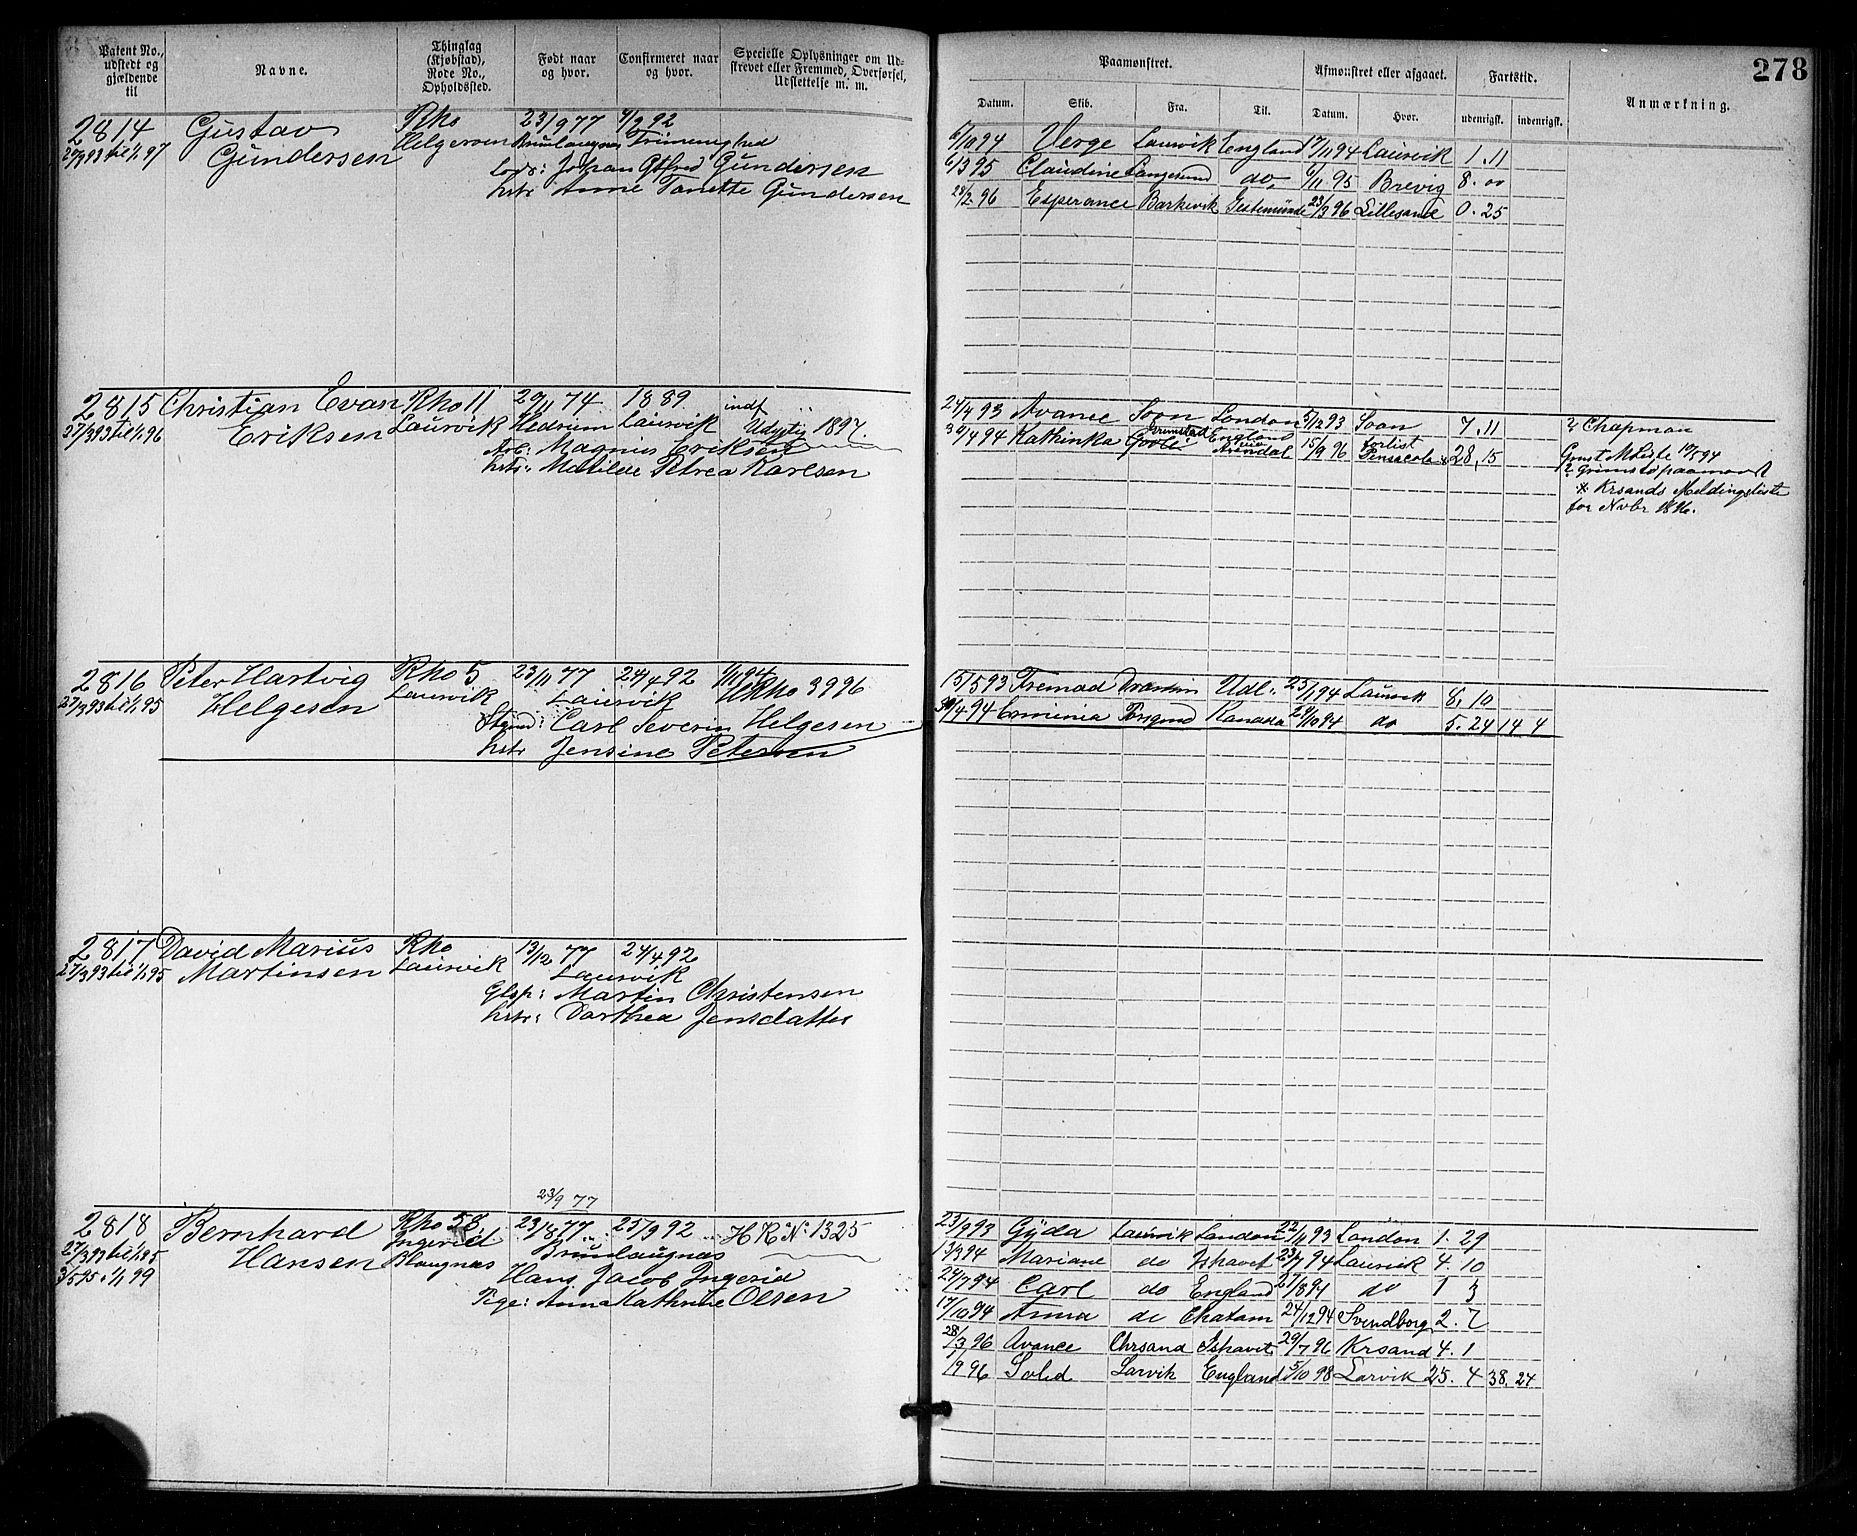 278
Patent No., udstedt og gjældende til
Navne.
Thinglag (Kjøbstad), Rode No., Opholdssted.
Født naar og hvor.
Confirmeret naar og hvor.
Specielle Oplysninger om Udskrevet eller Fremmed, Overførsel, Udslettelse m. m.
Paamønstret.
Afmønstret eller afgaaet.
Fartstid.
Anmærkning.
Datum. Skib. Fra. Til. Datum. Hvor. udenrigsk. indenrigsk.
2814 Gustav Rho 23/9 77 4/9 92
27/3 93 til 1/1 97 Gundersen Helgeroen Brunlaugnæs
Lods: Johan Gtfred Gundersen
hstr: Anne Tanette Gundersen
6/10 94 Verge Laurvik England 17/11 94 Laurvik 1.11
6/3 95 Claudine Langesund do. 6/11 95 Brevig 8.00
28/2 96 Esperance Barkevik Gestemünde 23/3 96 Lillesand 0.25
2815 Christian Evan Rho 11 29/11 74 1889 indf
27/3 93 til 1/1 96 Eriksen Laurvik Hedrum Laurvik Udygtig 1897.
Arb: Magnus Eriksen
hstr: Matilde Petrea Karlsen
24/4 93 Avance Soon London 5/12 93 Soon 7.11 Chapman
30/4 94 Kathinka Grimstad England Arendal 15/9 96 forlist Pensacola 28.15
* Krsands Meldingsliste
for Nvbr 1896.
2816 Peter Hartvig Rho 5 23/11 77 24/4 92 1/1 94
27/3 93 til 1/1 95 Helgesen Laurvik Laurvik HRho 3996
Carl Severin Helgesen
hstr Jensine Petersen
15/5 93 Fremad Drammen Udl. 23/1 94 Laurvik 8,10
30/4 94 Erminia Porsgrund Kanada 24/10 94 do 5.24 14 4
2817 David Marius Rho 13/12 77 24/4 92
27/3 93 til 1/1 95 Martinsen Laurvik Laurvik
Glsp: Martin Christensen
hstr: Dorthea Jensdatter
23/9 77
2818 Bernhard Rho 58 23/8 77 25/9 92 H R No 1325
27/3 93 til 1/1 95 Hansen Ingerid Blaugnæs Brunlaugnæs
3/5 95 " 1/1 99 Hans Jacob Ingerid
Pige: Anna Kathrine Olsen
23/9 93 Gyda Laurvik London 22/11 93 London 1.29
13/3 94 Mariane do Ishavet 23/7 94 Laurvik 4.10
24/7 94 Carl do England 27/8 94 do 1 3
17/10 94 Anna do Chatam 24/12 94 Svendborg 2.7
28/3 96 Avance Chrsand Ishavet 29/7 96 Krsand 4.1
1/9 96 Solid Larvik England 5/10 98 Larvik 25.4 38.24